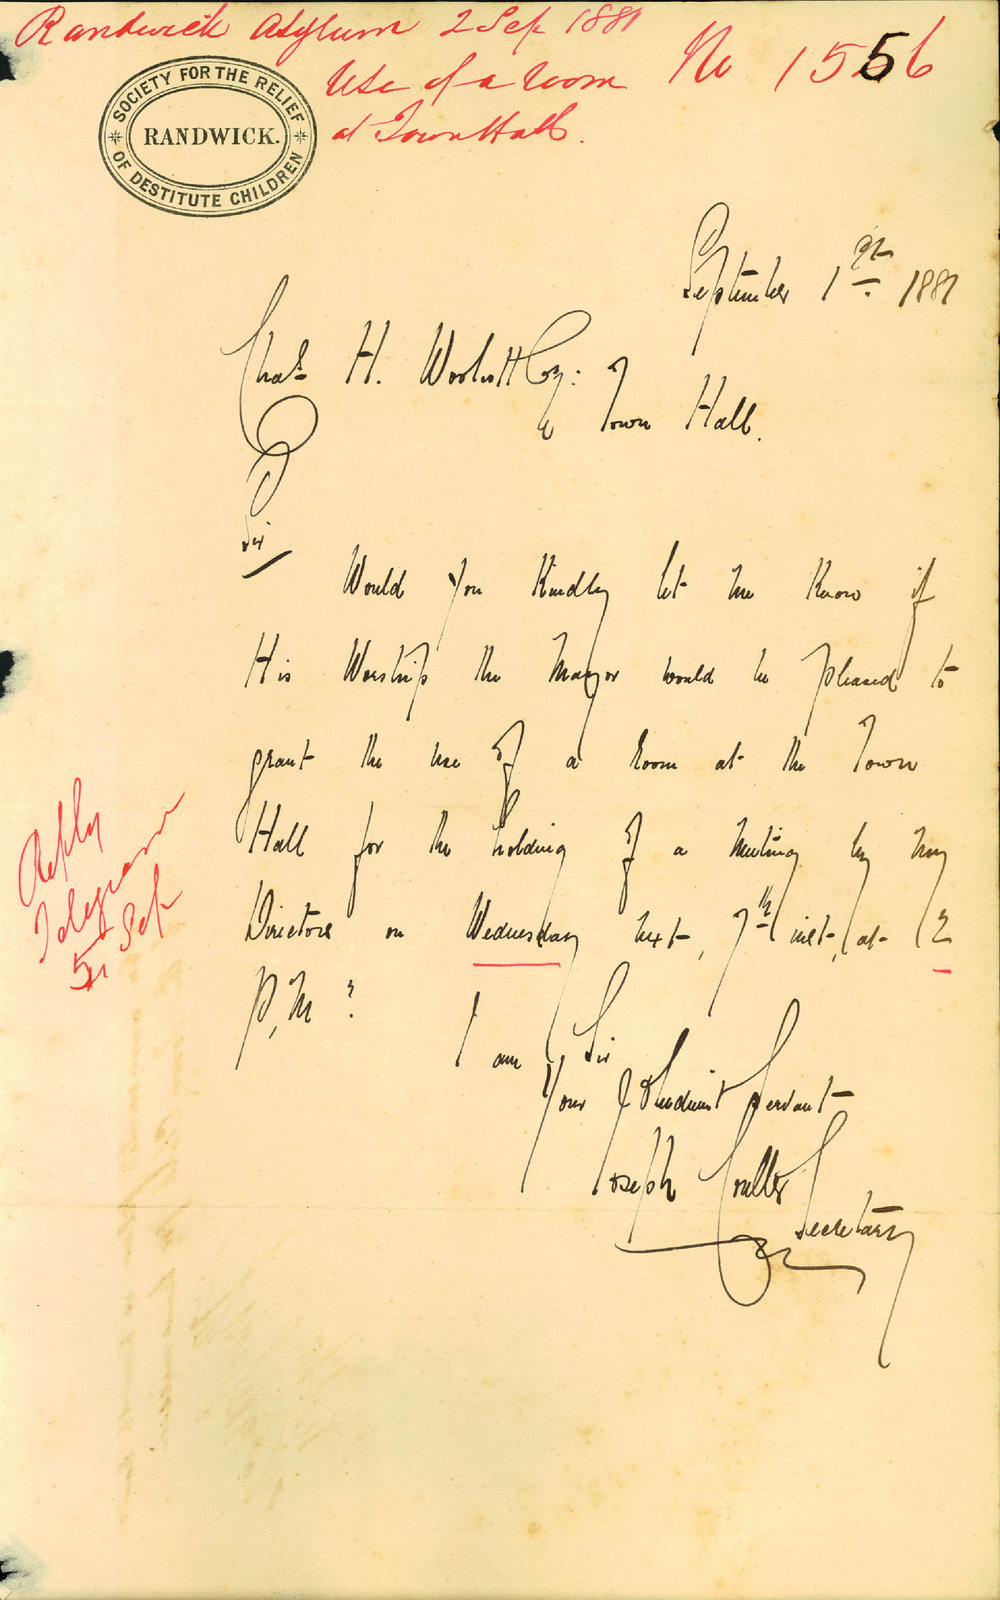 Randwick Asylum 2 Sep 1881
Use of a room
at Town Hall.
No 1556
SOCIETY FOR THE RELIEF
RANDWICK.
OF DESTITUTE CHILDREN
September 1st 1881
Chas H. Woolcott Esq:
Town Hall.
Sir
Would you Kindly let me Know if
His Worship the Mayor would be pleased to
grant the use of a Room at the Town
Hall for the holding of a meeting by my
Directors on Wednesday next, 7th inst, at 2
P,M ?
I am Sir
Your Obedient Servant
Joseph Coulter
Secretary
Reply
Telegram
5 Sep